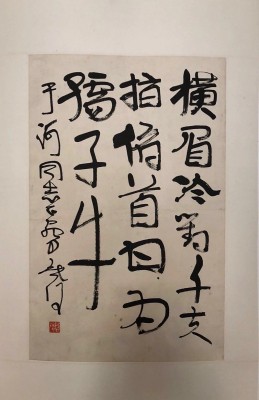 横眉冷对千夫
指俯首甘为
孺子牛
于河同志